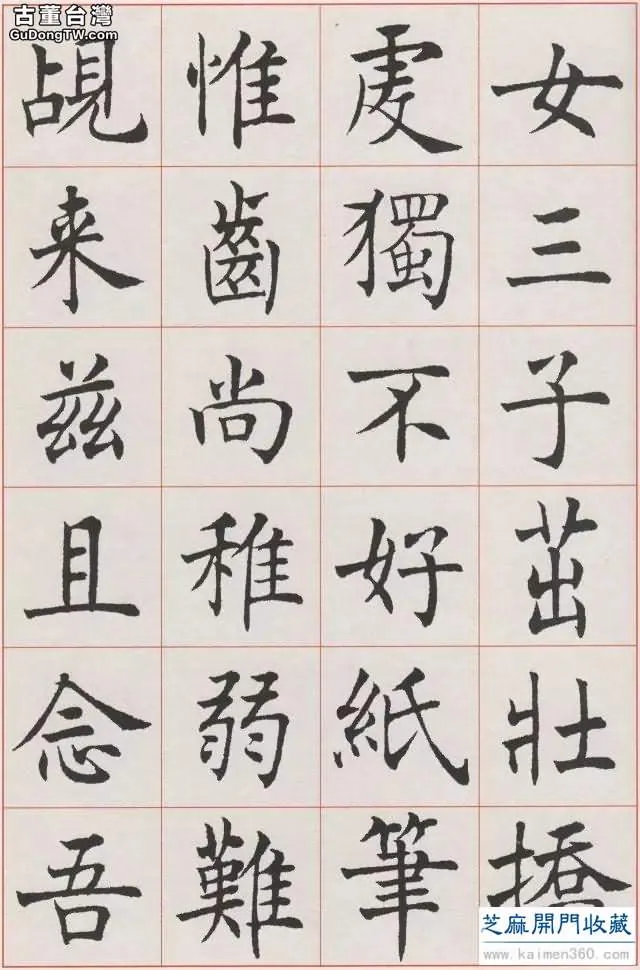 古董台灣
GuDongTW.com
女三子茁壯撟
虔獨不好紙筆
惟齒尚稚弱難
覘来兹且念吾
芝麻開門收藏
www.kaimen360.com